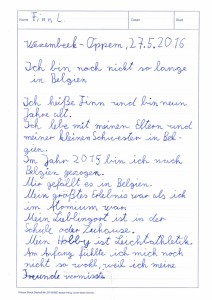 Name: Finn L.
Wezembeek-Oppem, 27.5.2016
Ich bin noch nicht so lange
in Belgien
Ich heiße Finn und bin neun
Jahre alt.
Ich lebe mit meinen Eltern und
meiner kleinen Schwester in Bel-
gien.
Im Jahr 2015 bin ich nach
Belgien gezogen.
Mir gefällt es in Belgien.
Mein größtes Erlebnis war als ich
im Atomium war.
Mein Lieblingort ist in der
Schule oder Zuhause.
Mein Hobby ist Leichtathletik.
Am Anfang fühlte ich mich noch
nicht so wohl, weil ich meine
Freunde vermisste